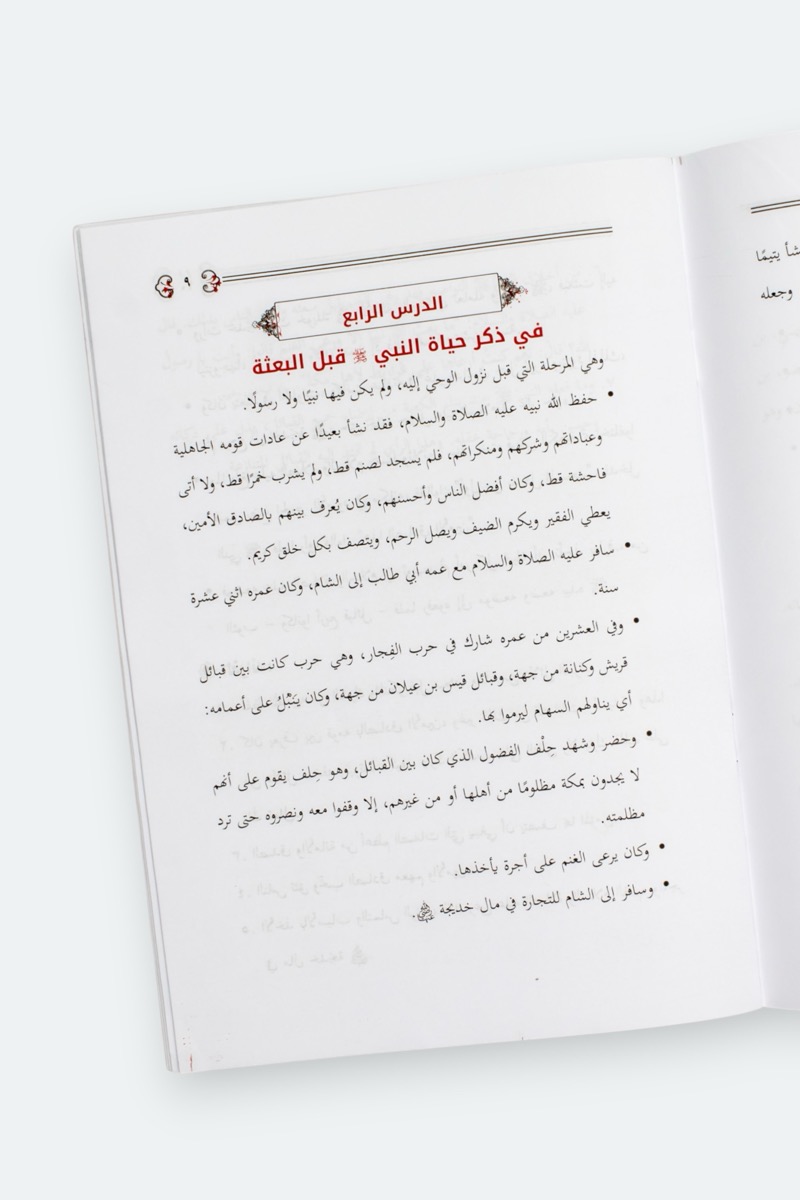 ٩
الدرس الرابع
في ذكر حياة النبي ﷺ قبل البعثة
وهي المرحلة التي قبل نزول الوحي إليه، ولم يكن فيها نبيًا ولا رسولًا.
• حفظ الله نبيه عليه الصلاة والسلام، فقد نشأ بعيدًا عن عادات قومه الجاهلية
وعباداتهم وشركهم ومنكراتهم، فلم يسجد لصنم قط، ولم يشرب خمرًا قط، ولا أتى
فاحشة قط، وكان أفضل الناس وأحسنهم، وكان يُعرف بينهم بالصادق الأمين،
يعطي الفقير ويكرم الضيف ويصل الرحم، ويتصف بكل خلق كريم.
• سافر عليه الصلاة والسلام مع عمه أبي طالب إلى الشام، وكان عمره اثني عشرة
سنة.
• وفي العشرين من عمره شارك في حرب الفِجار، وهي حرب كانت بين قبائل
قريش وكنانة من جهة، وقبائل قيس بن عيلان من جهة، وكان يَنْبُلُ على أعمامه:
أي يناولهم السهام ليرموا بها.
• وحضر وشهد حِلْف الفضول الذي كان بين القبائل، وهو حِلف يقوم على أنهم
لا يجدون بمكة مظلومًا من أهلها أو من غيرهم، إلا وقفوا معه ونصروه حتى ترد
مظلمته.
• وكان يرعى الغنم على أجرة يأخذها.
• وسافر إلى الشام للتجارة في مال خديجة.
شأ يتيمًا
وجعله